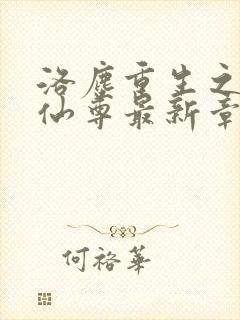 洛塵重生之
仙尊最新章
何裕華